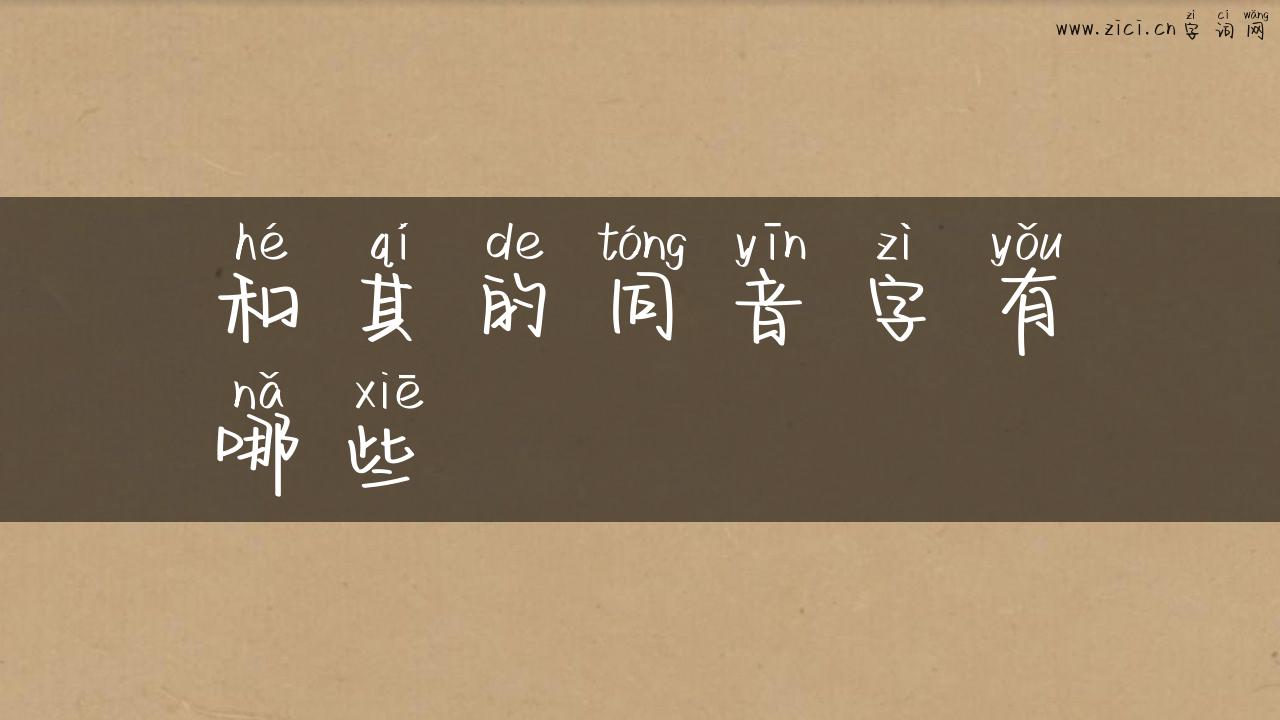 zì cí wǎng
www.zici.cn 字词网
hé qí de tóng yīn zì yǒu
和其的同音字有
nǎ xiē
哪些